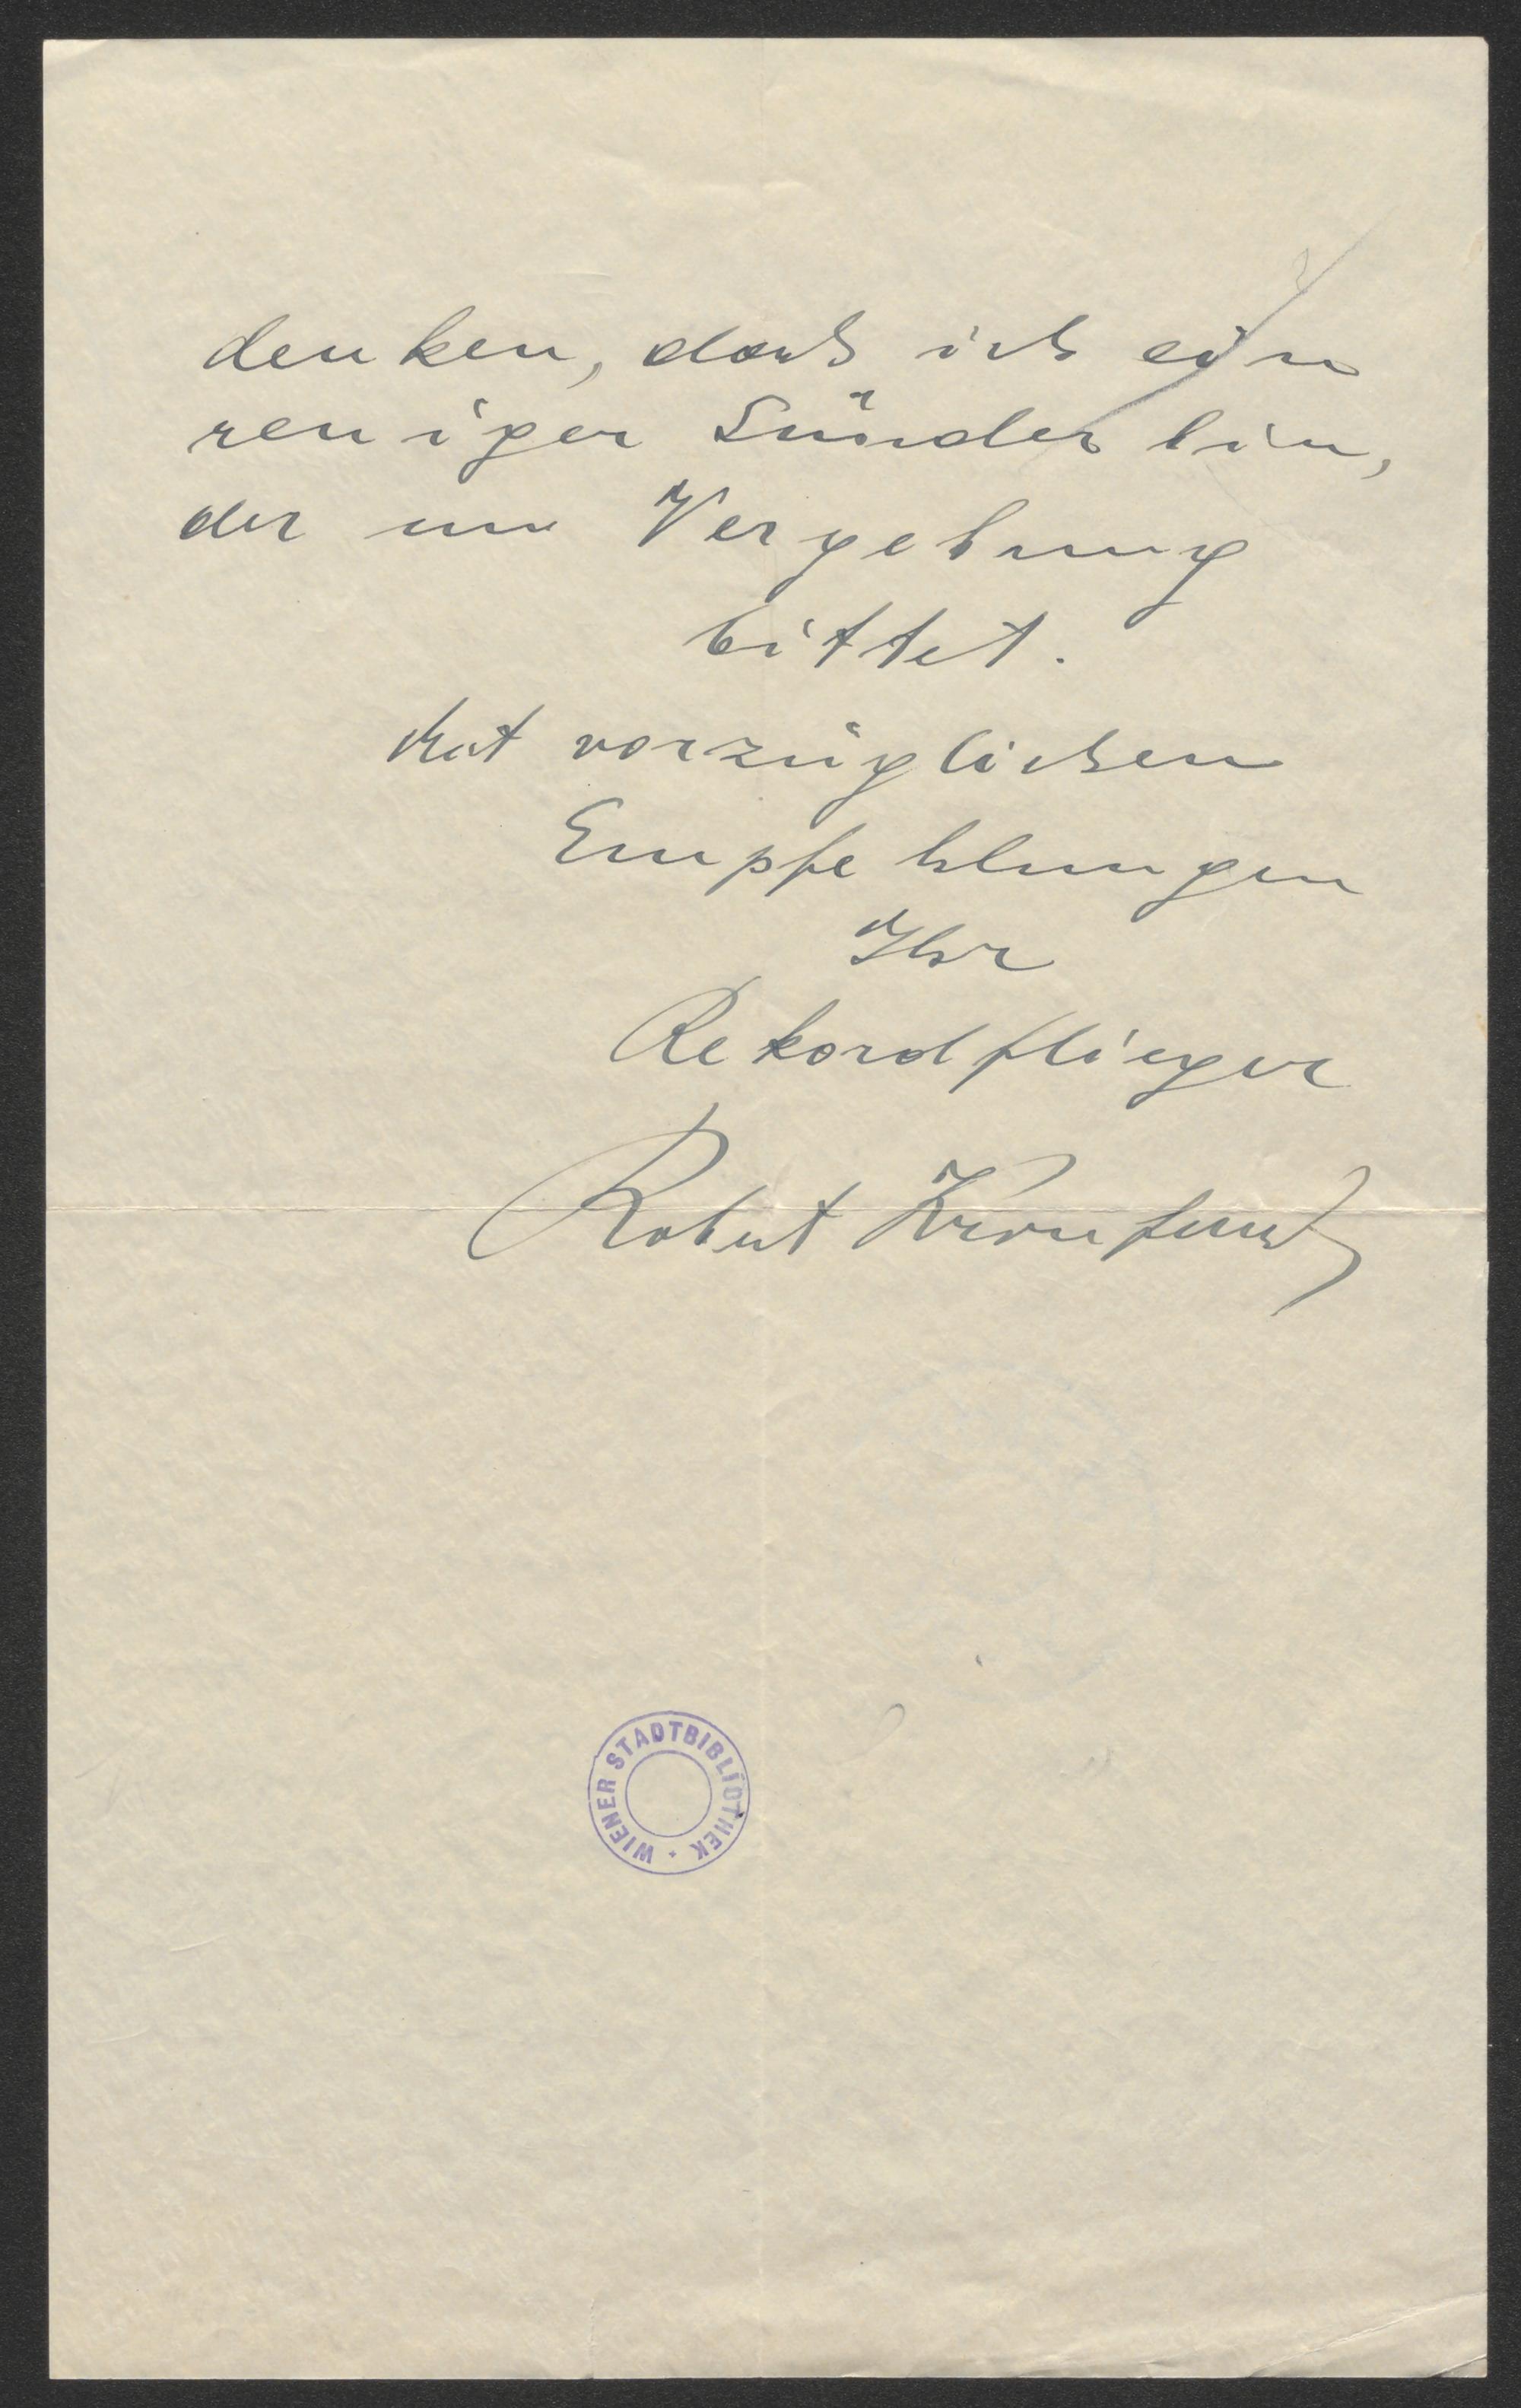 denken, dass ich ein
reuiger Sünder bin,
der um Vergebung
bittet.
Mit vorzüglichen
Empfehlungen
Ihr
Rekordflieger
Robert Kronfeld
WIENER STADTBIBLIOTHEK